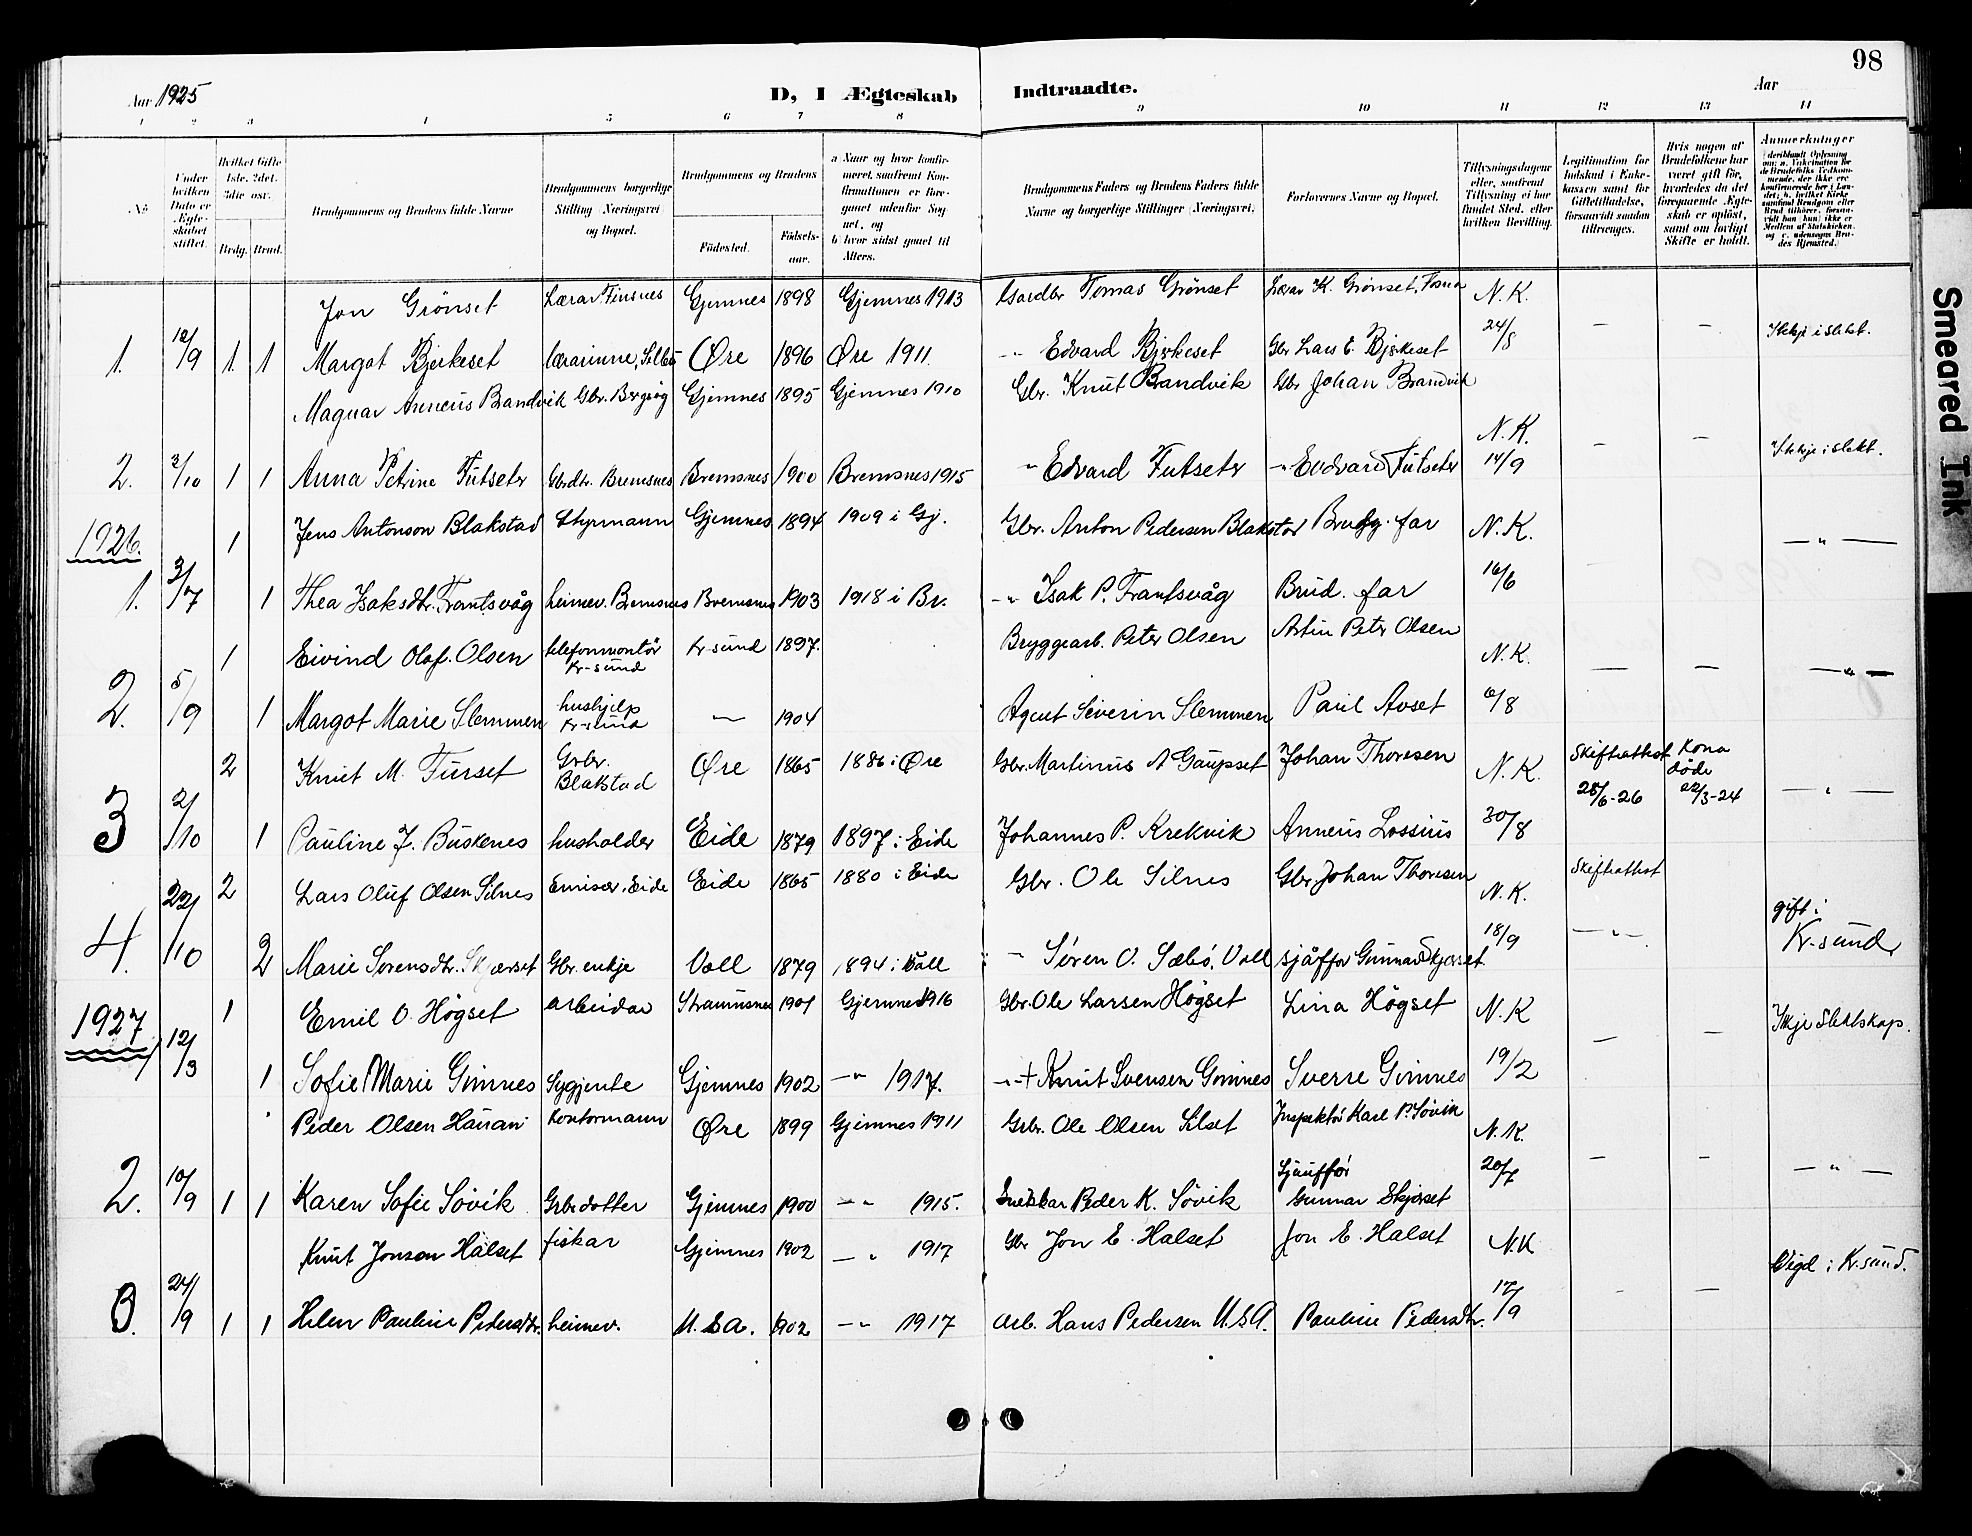 98
Aar 1925 D, I Ægteskab Indtraadte. Aar
1 2 3 4 5 6 7 8 9 10 11 12 13 14
No
Under hvilken Dato er Ægteskabet stiftet.
Hvilket Gifte 1ste, 2det, 3die osv.
Brdg. Brud.
Brudgommens og Brudens fulde Navne
Brudgommens borgerlige Stilling (Næringsvei) og Bopæl.
Brudgommens og Brudens
Fødested. Fødselsaar.
a Naar og hvor konfirmeret, saafremt Konfirmationen er foregaaet udenfor Sognet, og
b hvor sidst gaaet til Alters.
Brudgommens Faders og Brudens Faders fulde Navne og borgerlige Stillinger (Næringsvei).
Forlovernes Navne og Bopæl.
Tillysningsdagene eller, saafremt Tillysning ei har fundet Sted, efter hvilken Bevilling.
Legitimation for Indskud i Enkekassen samt for Giftetilladelse, forsaavidt saadan tiltrænges.
Hvis nogen af Brudefolkene har været gift før, hvorledes da det foregaaende Ægteskab er opløst, samt om lovligt Skifte er holdt.
Anmerkninger
Jon Grönset Lærar Finsnes Gjemnes 1898 Gjemnes 1913 Gardbr Tomas Grönset Lærar K. Grönset, Fosna N.K.
1. 12/9 1 1 Margot Bjerkeset lærarinne, Øre 1896 Øre 1911. " Edvard Bjerkeset Gbr Lars E. Bjerkeset 24/8 — — Ikkje i slekt.
Magnar Anneus Brandvik Gbr. Bergsøy Gjemnes 1895 Gjemnes 1910 Gbr. Knut Brandvik Gbr Johan Brandvik
N.K.
2. 3/10 1 1 Anna Petrine Futseter Gbrdtr. Bremsnes Bremsnes 1900 Bremsnes 1915 " Edvard Futseter " Edvard Futseter 14/9 — — Ikkje i slekt.
1926. 1 Jens Antonson Blakstad Styrmann Gjemnes 1894 1909 i Gj. Gbr. Anton Pedersen Blakstad Brudg. far N.K. — " —
1. 3/7 1 Thea Isaksdtr. Frantsvåg heimev. Bremsnes Bremsnes 1903 1918 i Br. — " Isak P. Frantsvåg Brud. far 16/6
1 Eivind Olaf. Olsen telefonmontör Kr-sund Kr-sund 1897. Bryggearb. Peter Olsen Peter Olsen N.K.
2. 5/9 1 Margot Marie Slemmen hushjelp Kr-sund — 1904 Agent Severin Slemmen Paul Avset 6/8 — — — " —
2 Knut M. Furset Grbr. Blakstad Øre 1865 1886 i Øre Gbr. Martinus A Gaupset Johan Thoresen N.K. Skifteattest 28/6-26 Kona døde 22/3-24 — " —
3 2/10 1 Pauline J. Buskenes husholder Eide 1879 1897 i Eide Johannes P. Krekvik Anneus Lossius 30/8
2 Lars Oluf Olsen Silnes Emisær, Eide Eide 1865 1880 i Eide Gbr. Ole Silnes Gbr Johan Thoresen N.K. Skifteattest
4. 22/10 2 Marie Sørensdtr. Skjærset Gbr. enkje Voll 1879 1894 i Voll — Søren O. Sæbö, Voll sjåffør Gunnar Skjerset 18/9 — " — gift i Kr.sund
1927 1 Emil O. Högset arbeidar Straumsnes 1901 Gjemnes 1916 Gbr. Ole Larsen Högset Lina Högset N.K — Ikkje Slektskap.
1 12/3 1 Sofie Marie Gimnes Sygjente Gjemnes 1902 — " 1917. — " + Knut Svensen Gimnes Sverre Gimnes 19/2 —
Peder Olsen Hauan Kontormann Øre 1899 Gjemnes 1911 Grbr. Ole Olsen Silset Inspektör Karl P. Sövik N.K.
2. 10/9 1 1 Karen Sofie Sövik Grbrdotter Gjemnes 1900 — " 1915. Snekkar Peder K. Sövik Sjauffør Gunnar Skjerset 20/7 — — — " —
Knut Jonson Halset fiskar Gjemnes 1902 — " 1917 Gbr Jon E. Halset Jon E. Halset N.K
3. 24/9 1 1 Helen Pauline Pedersdtr. heimev. U.S.A. 1902 — " 1917 Arb. Hans Pedersen U.S.A. Pauline Pedersdtr. 17/9 — — Vigd i Kr.sund.
Smeared Ink